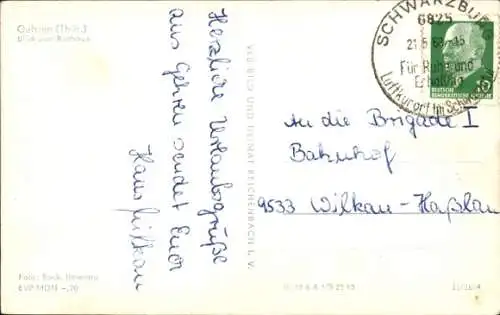 Gehren (Thür.)
Blick zum Rathaus
Herzliche Urlaubsgrüße
aus Gehren sendet Euch
Hans
VEB BILD UND HEIMAT REICHENBACH I. V.
SCHWARZBURG
6825
Für Ruhe und
Erholung
Luftkurort im
10
DEUTSCHE
DEMOKRATISCHE REPUBLIK
An die Brigade I
Bahnhof
9533 Wilkau-Haßlau
Foto:
EVP MDN -,20